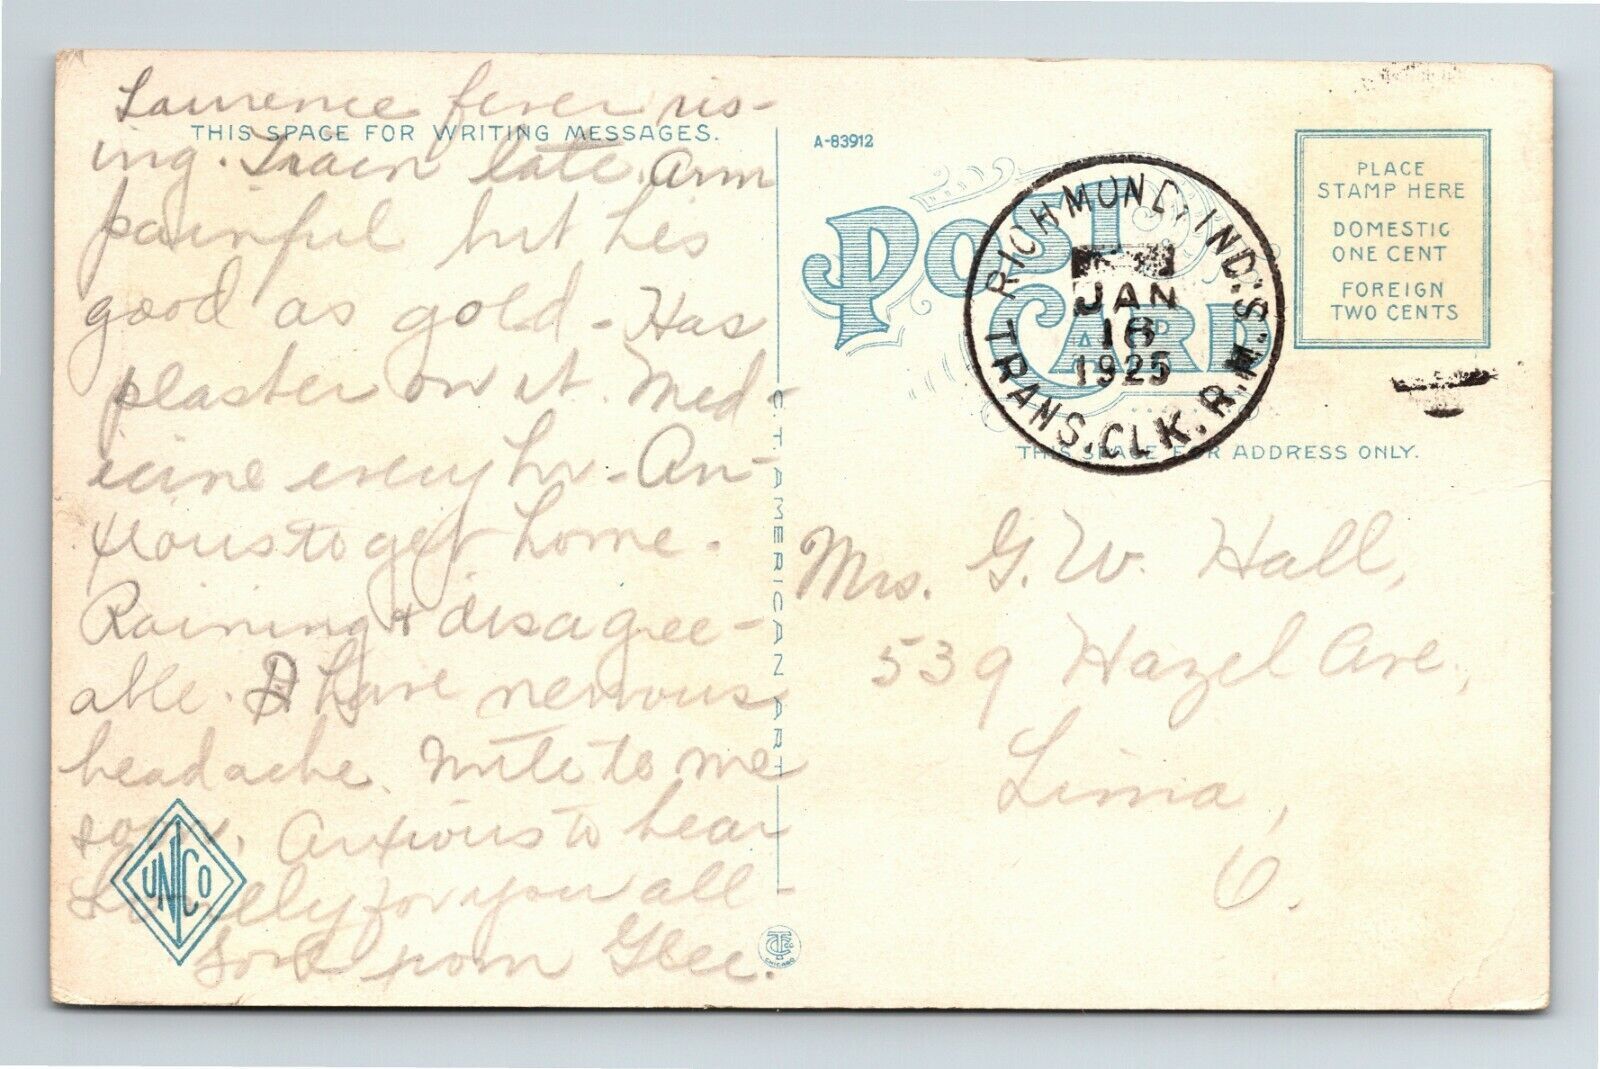 Laurence fever ris-
THIS SPACE FOR WRITING MESSAGES.
ing. Train late. Arm
painful but his
good as gold - Has
plaster on it. Med-
icine every hr - An-
xious to get home.
Raining & disagree-
able. I have nervous
headache. Write to me
soon. Anxious to hear
for you all -
Love from Glee.
UNICO
C.T. AMERICAN ART
CHICAGO
A-83912
POST CARD
RICHMOND, IND. S. TRANS. CLK. R.M.S.
JAN
16
1925
PLACE
STAMP HERE
DOMESTIC
ONE CENT
FOREIGN
TWO CENTS
THIS SPACE FOR ADDRESS ONLY.
Mrs. G. W. Hall,
539 Hazel Ave,
Lima,
O.